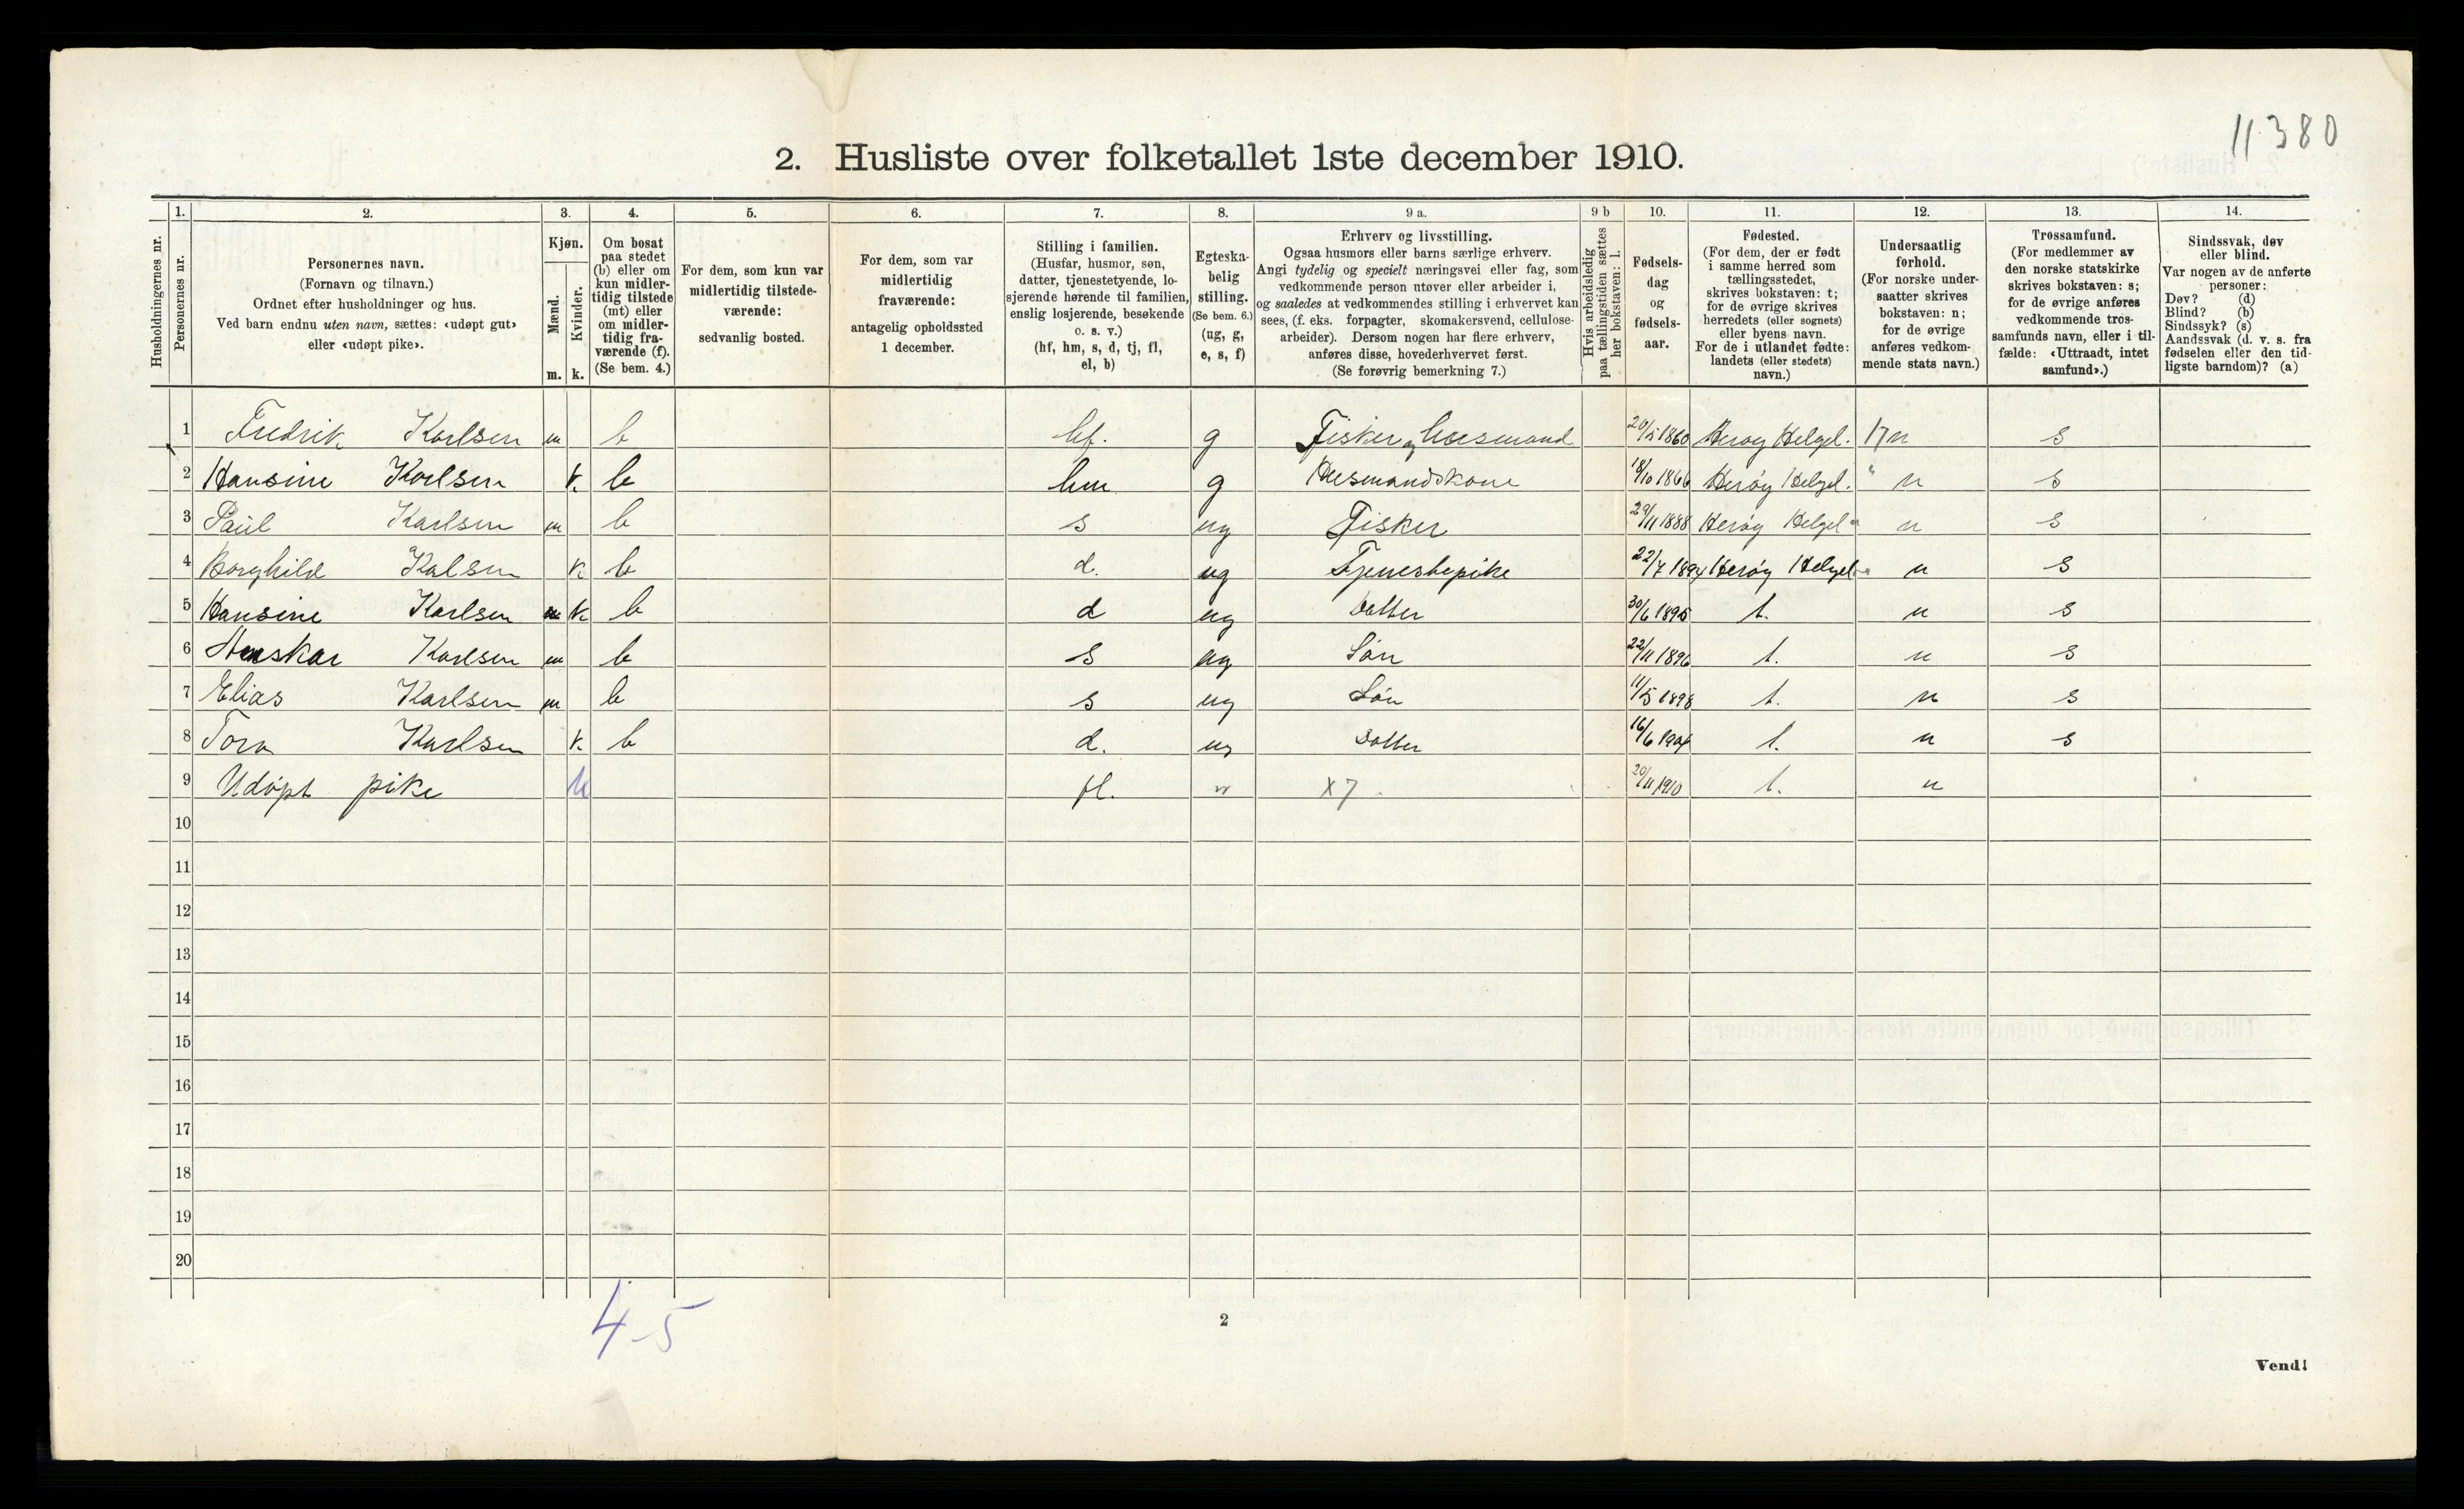 11380
2. Husliste over folketallet 1ste december 1910.
Husholdningernes nr.
1. Personernes nr.
2. Personernes navn.
(Fornavn og tilnavn.)
Ordnet efter husholdninger og hus.
Ved barn endnu uten navn, sættes: «udøpt gut»
eller «udøpt pike».
3. Kjøn.
Mænd. m.
Kvinder. k.
4. Om bosat
paa stedet
(b) eller om
kun midler-
tidig tilstede
(mt) eller
om midler-
tidig fra-
værende (f).
(Se bem. 4.)
5. For dem, som kun var
midlertidig tilstede-
værende:
sedvanlig bosted.
6. For dem, som var
midlertidig
fraværende:
antagelig opholdssted
1 december.
7. Stilling i familien.
(Husfar, husmor, søn,
datter, tjenestetyende, lo-
sjerende hørende til familien,
enslig losjerende, besøkende
o. s. v.)
(hf, hm, s, d, tj, fl,
el, b)
8. Egteska-
belig
stilling.
(Se bem. 6.)
(ug, g,
e, s, f)
9 a. Erhverv og livsstilling.
Ogsaa husmors eller barns særlige erhverv.
Angi tydelig og specielt næringsvei eller fag, som
vedkommende person utøver eller arbeider i,
og saaledes at vedkommendes stilling i erhvervet kan
sees, (f. eks. forpagter, skomakersvend, cellulose-
arbeider). Dersom nogen har flere erhverv,
anføres disse, hovederhvervet først.
(Se forøvrig bemerkning 7.)
9 b Hvis arbeidsledig
paa tællingstiden sættes
her bokstaven: l.
10. Fødsels-
dag
og
fødsels-
aar.
11. Fødested.
(For dem, der er født
i samme herred som
tællingsstedet,
skrives bokstaven: t;
for de øvrige skrives
herredets (eller sognets)
eller byens navn.
For de i utlandet fødte:
landets (eller stedets)
navn.)
12. Undersaatlig
forhold.
(For norske under-
saatter skrives
bokstaven: n;
for de øvrige
anføres vedkom-
mende stats navn.)
13. Trossamfund.
(For medlemmer av
den norske statskirke
skrives bokstaven: s;
for de øvrige anføres
vedkommende tros-
samfunds navn, eller i til-
fælde: «Uttraadt, intet
samfund».)
14. Sindssvak, døv
eller blind.
Var nogen av de anførte
personer:
Døv? (d)
Blind? (b)
Sindssyk? (s)
Aandssvak (d. v. s. fra
fødselen eller den tid-
ligste barndom)? (a)
1 Fredrik Karlsen m b hf. g Fisker og husmand 20/5 1860 Herøy Helgel. 17 n s
2 Hansine Karlsen k. b hm g Husmandskone 18/10 1866 Herøy Helgel. " n s
3 Paul Karlsen m b s ug Fisker 29/11 1888 Herøy Helgel " n s
4 Borghild Kalsen k b d. ug Tjenestepike 22/7 1894 Herøy Helgel " n s
5 Hansine Karlsen k b d ug Datter 30/6 1895 t. n s
6 Karlsen m b s ug Søn 22/11 1896 t. n s
7 Elias Karlsen m b s ug Søn 11/5 1898 t. n s
8 Tora Karlsen k. b d. ug Datter 16/6 1904 t. n s
9 Udøpt pike k fl. " x7 20/11 1910 t. n
10
11
12
13
14
15
16
17
18
19
20
4-5
2
Vend!